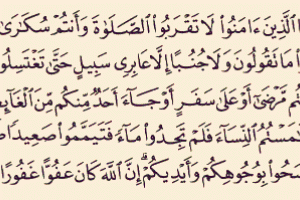 ا الَّذِينَ ءَامَنُوا۟ لَا تَقْرَبُوا۟ الصَّلَوٰةَ وَأَنتُمْ سُكَـٰرَىٰ
ا مَا تَقُولُونَ وَلَا جُنُبًا إِلَّا عَابِرِى سَبِيلٍ حَتَّىٰ تَغْتَسِلُو
تُم مَّرْضَىٰٓ أَوْ عَلَىٰ سَفَرٍ أَوْ جَآءَ أَحَدٌ مِّنكُم مِّنَ الْغَآئِ
مَسْتُمُ النِّسَآءَ فَلَمْ تَجِدُوا۟ مَآءً فَتَيَمَّمُوا۟ صَعِيدًا
سَحُوا۟ بِوُجُوهِكُمْ وَأَيْدِيكُمْ ۗ إِنَّ اللَّهَ كَانَ عَفُوًّا غَفُورًا